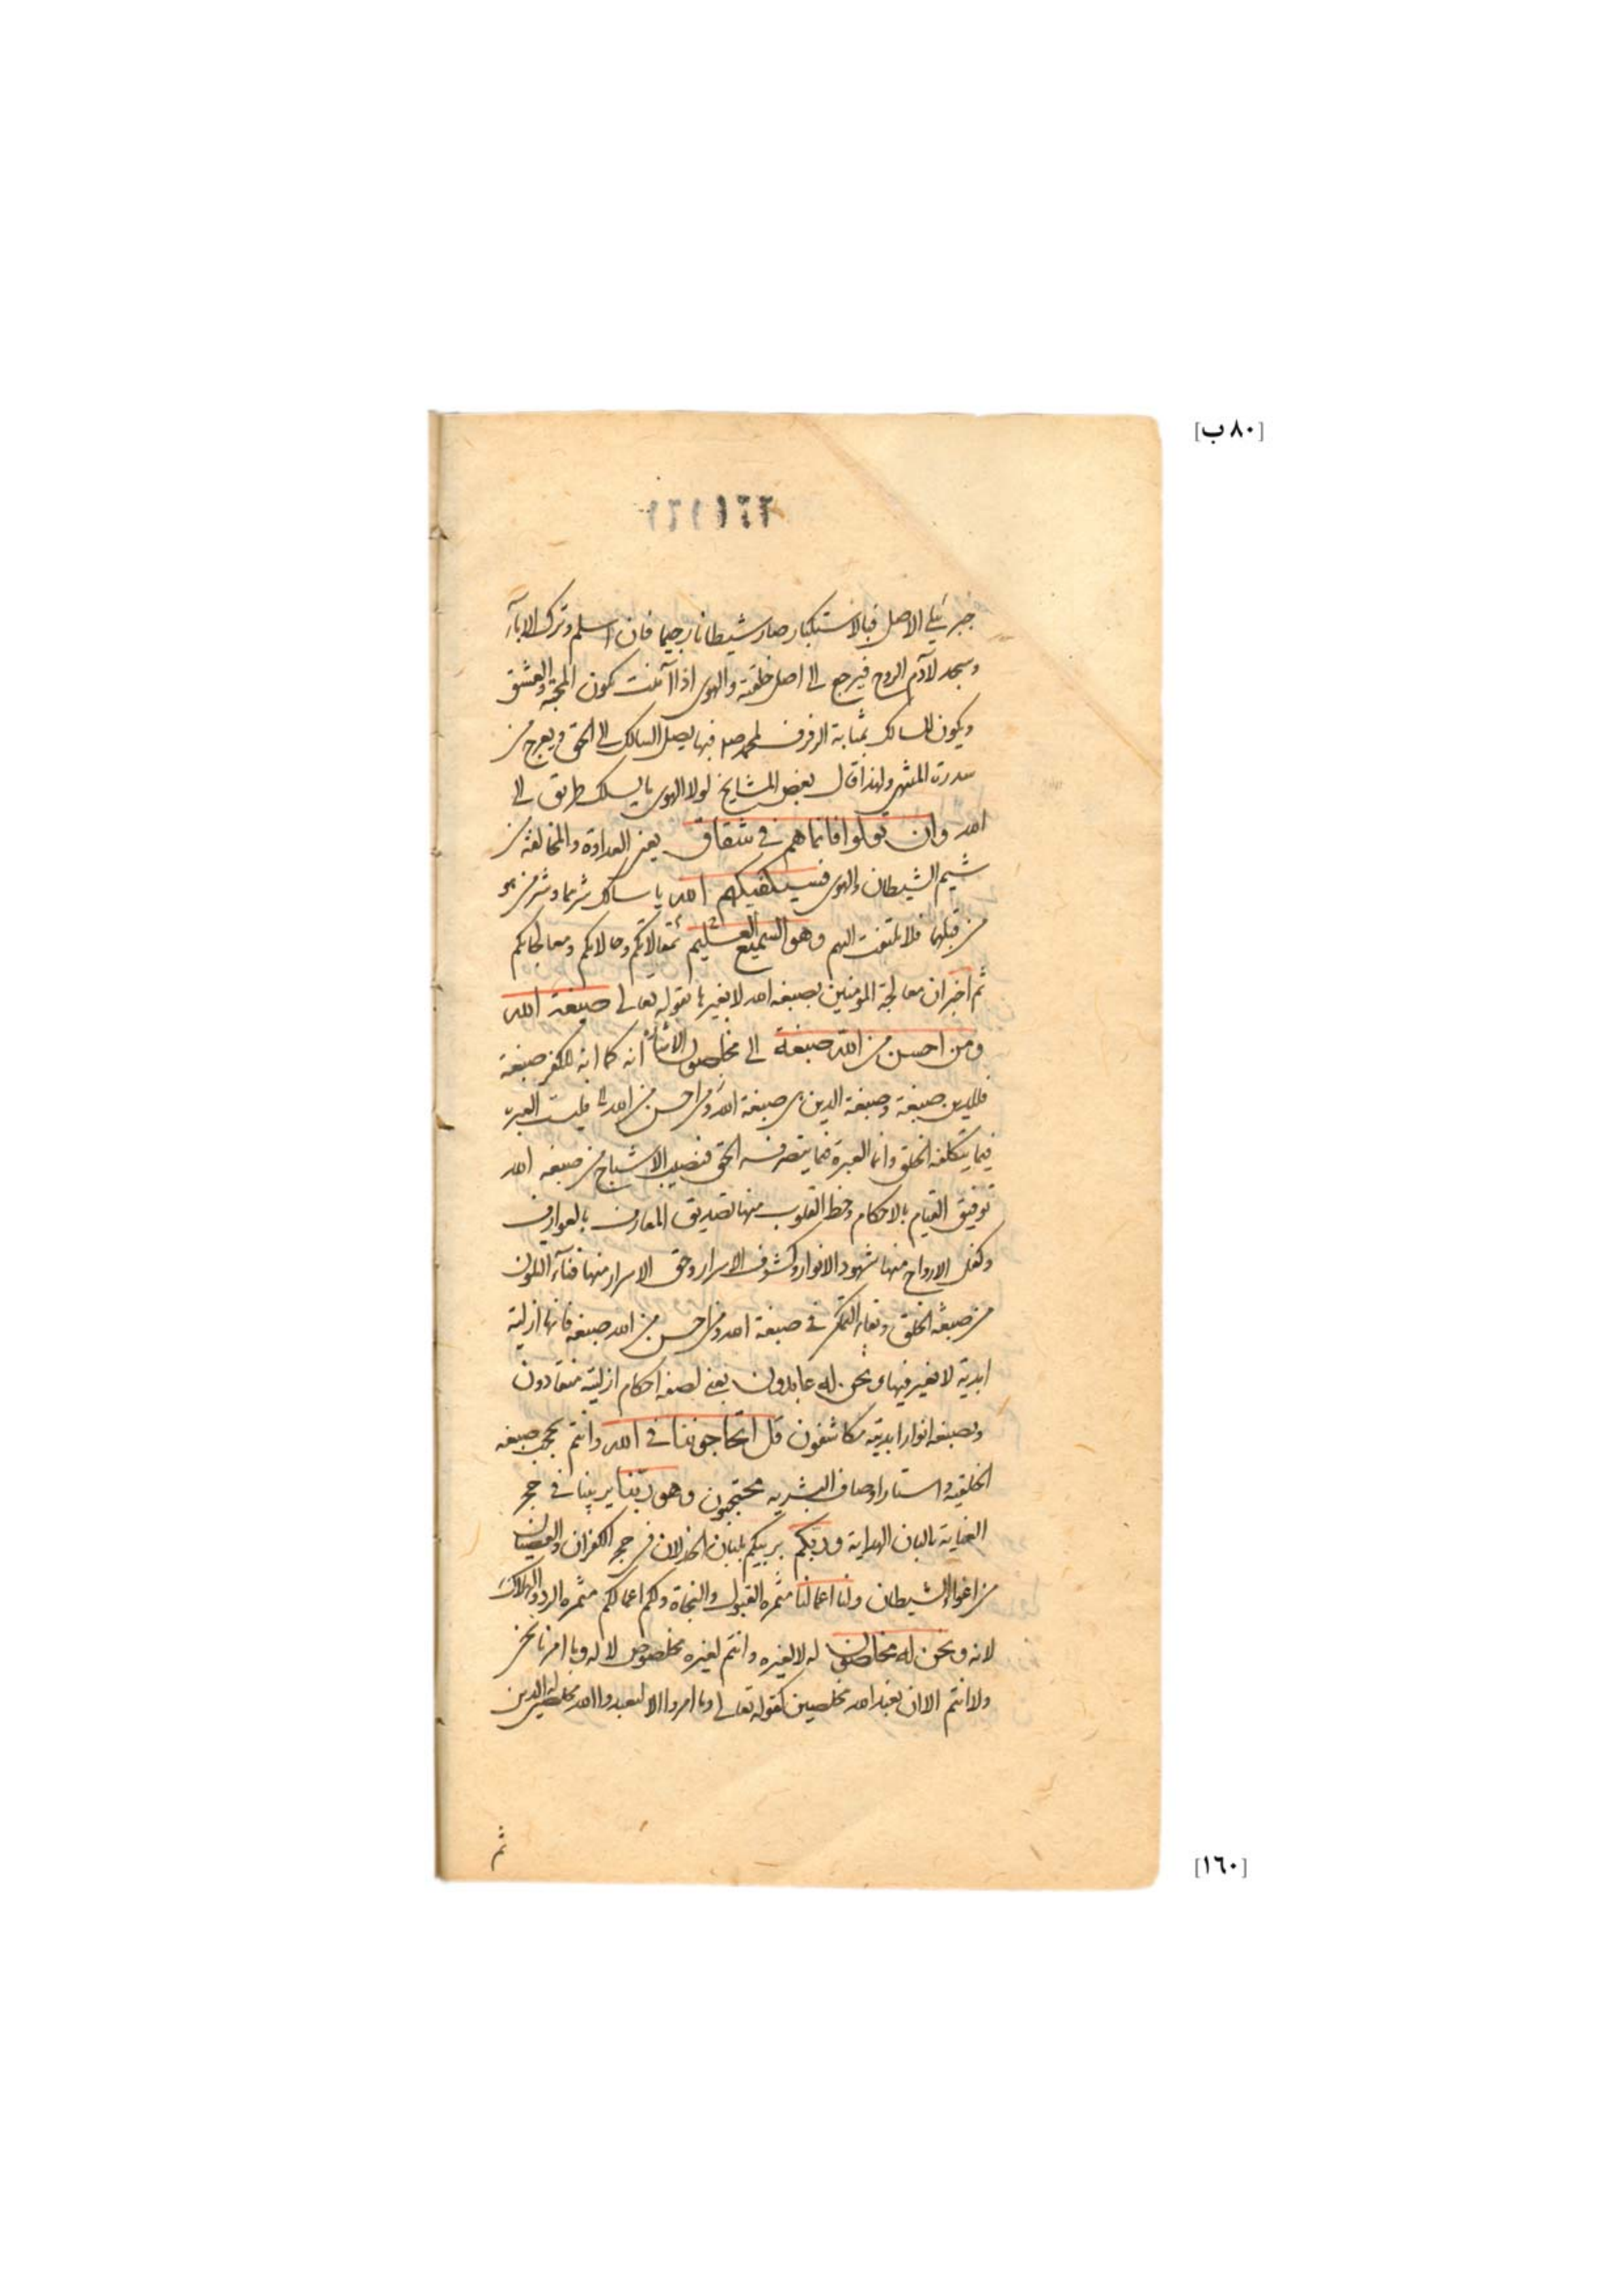 [٨٠ ب]
١٦١ ١٦٢
جبرئيلي الاصل فبالاستكبار صار شيطانا رجيما فان اسلم وترك الاباء
وسجد لآدم الروح فيرجع الى اصل خلقته والهوى اذا آمنت تكون المحبة والعشق
ويكون للسالك بمثابة الرفرف لمحمد صلم فبها يصل السالك الى الحق ويعرج من
سدرة المنتهى ولهذا قال بعض المشايخ لولا الهوى ما يسلك طريق الى
الله وان تولوا فانما هم في شقاق يعني العداوة والمخالفة من
شيم الشيطان والهوى فسيكفيكهم الله يا سالك شرهما وشر من هو
من قبلهما فلا تلتفت اليهم وهو السميع العليم بمقالاتكم وحالاتكم ومعالجاتكم
ثم اخبر ان معالجة المؤمنين بصبغة الله لا بغيرها بقوله تعالى صبغة الله
ومن احسن من الله صبغة الى مخلصون الاشارة انه كما انه للكفر صبغة
فللدين صبغة وصبغة الدين هي صبغة الله ومن احسن من الله الى فليست العبرة
فيما يتكلفه الخلق وانما العبرة فيما يتصرف فيه الحق فنصيب الاشباح من صبغة الله
توفيق القيام بالاحكام وحظ القلوب منها تصديق المعارف بالعوارف
وكفل الارواح منها شهود الانوار وكشوف الاسرار وحق الاسرار منها فناء التلون
من صبغة الخلق وبقاء التمكن في صبغة الله ومن احسن من الله صبغة فانها ازلية
ابدية لا تغير فيها ونحن له عابدون يعني لصبغة احكام ازلية منقادون
وبصبغة انوار ابدية مكاشفون قل اتحاجوننا في الله وانتم بحجب صبغة
الخلقية واستار اوصاف البشرية محتجبون وهو ربنا يربينا في حجر
العناية بالبان الهداية وربكم يربيكم بلبان الخذلان في حجر الكفران والعصيان
من اغواء الشيطان ولنا اعمالنا مثمرة القبول والنجاة ولكم اعمالكم مثمرة الرد والهلاك
لانه ونحن له مخلصون له لا لغيره وانتم لغيره مخلصون لا له وما امرنا نحن
ولا انتم الا ان نعبد الله مخلصين كقوله تعالى وما امروا الا ليعبدوا الله مخلصين له الدين
ثم
[١٦٠]